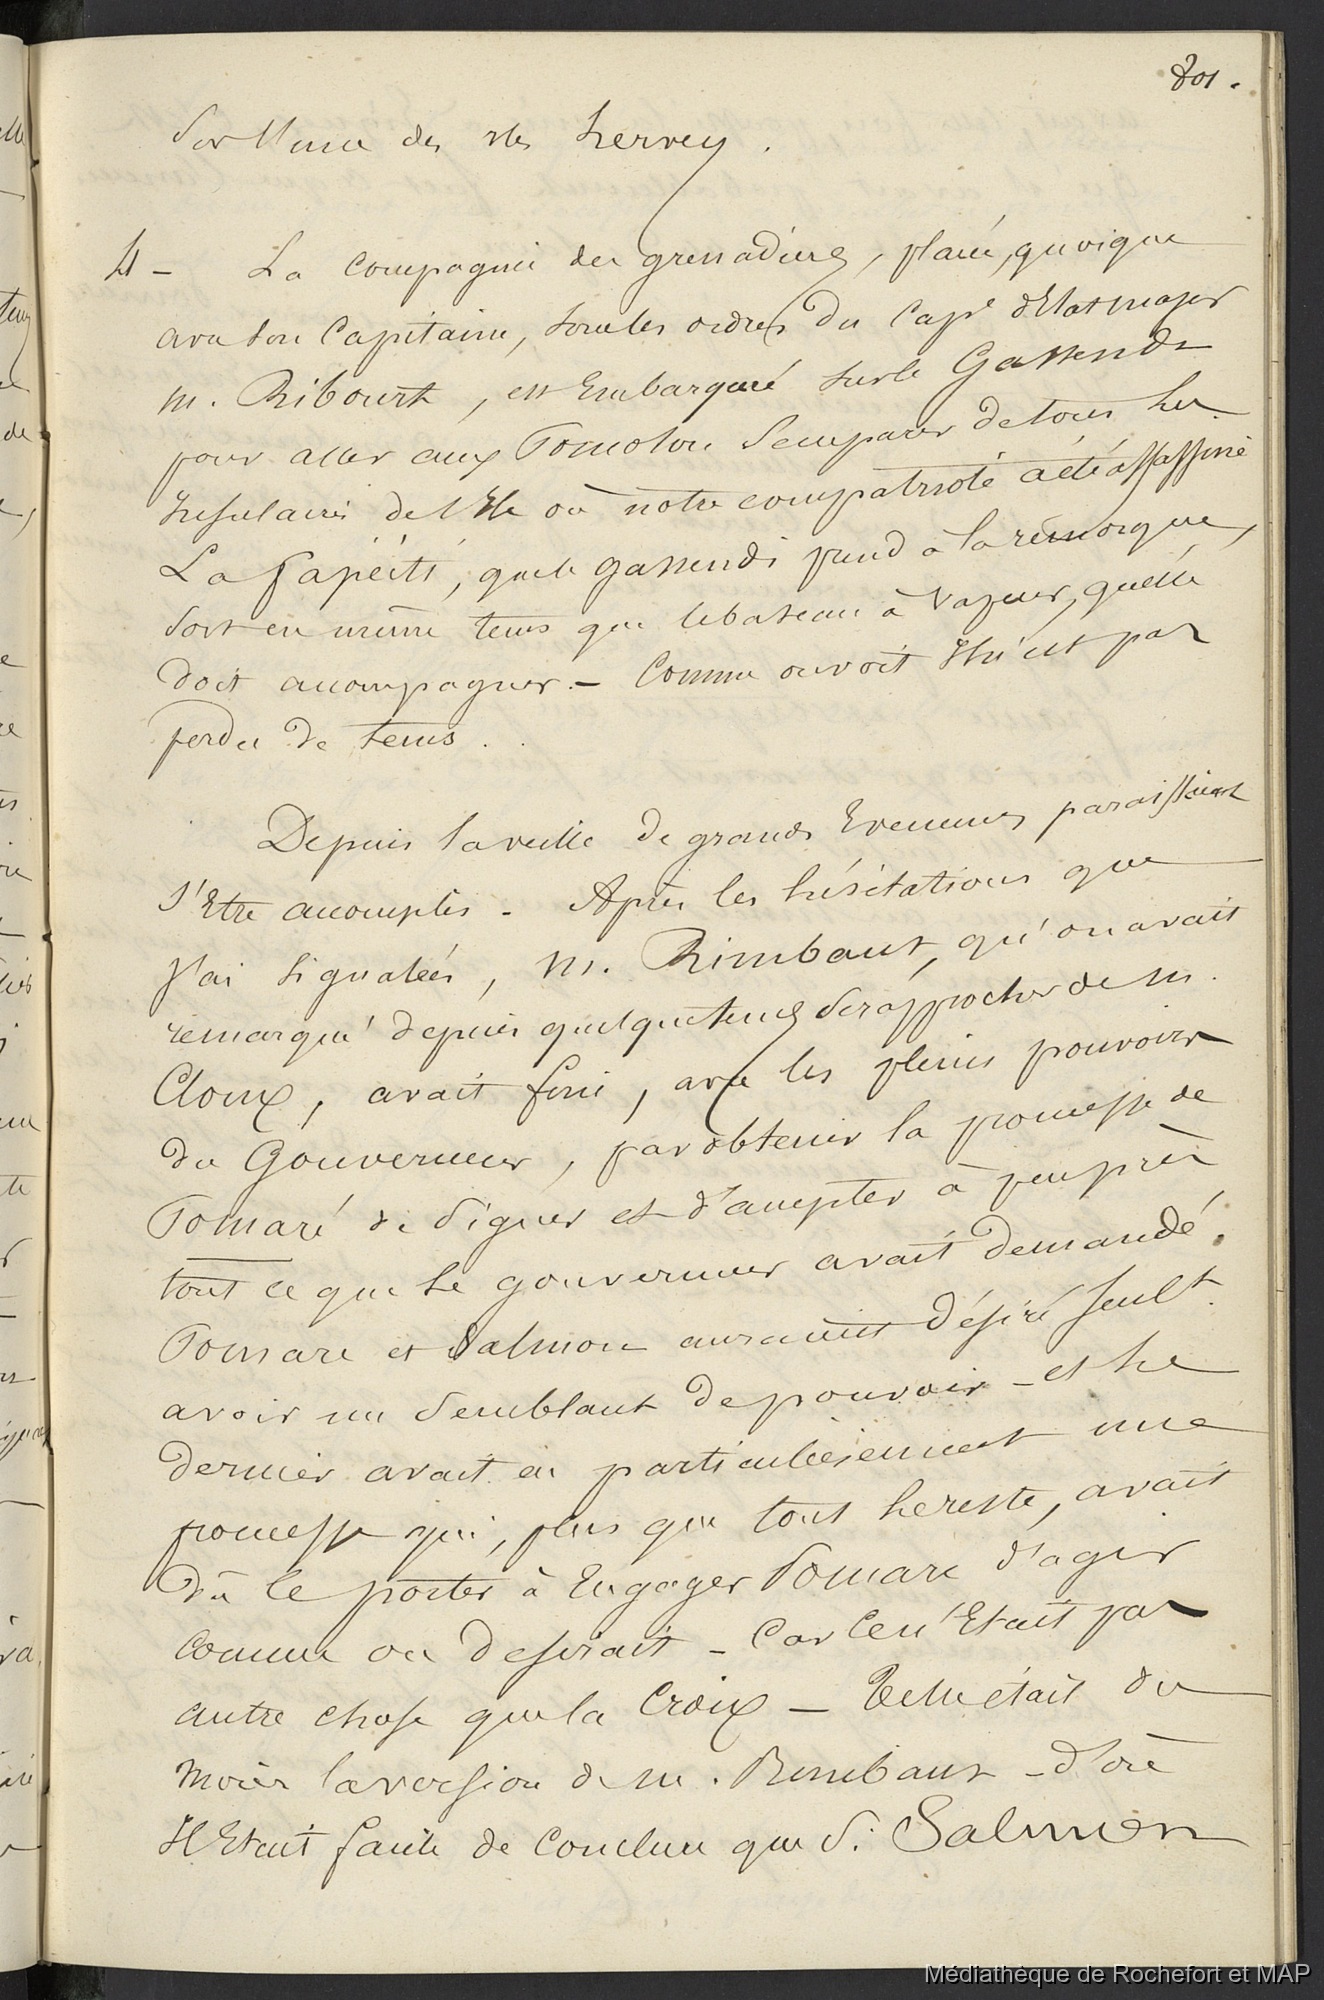 801.
sur l'une des Iles hervey.
4 - La Compagnie des grenadiers, placée, quoique
avec son Capitaine, sous les ordres du Cap.e d'Etat major
M. Ribourt, est Embarquée sur le Gassendi
pour aller aux Pomotou s'emparer de tous les
Insulaires de l'Ile où notre compatriote a été assassiné
La papéiti, que le gassendi prend à la remorque,
sort en même tems que le bateau à vapeur, qu'elle
doit accompagner. - Comme on voit Il n'est pas
perdu de tems.
Depuis la veille de grands Evenemens paraissaient
s'Etre accomplis - Après les hésitations que
j'ai signalées, M. Rimbaut, qu'on avait
remarqué depuis quelque tems se rapprocher de M.
Cloux, avait fini, avec les pleins pouvoirs
du Gouverneur, par obtenir la promesse de
Pomaré de signer et d'accepter à peu près
tout ce que le gouverneur avait demandé.
Pomare et Salmon auraient désiré seult.
avoir un semblant de pouvoir - et le
dernier avait eu particulièrement une
promesse qui, plus que tout le reste, avait
dû le porter à Engager Pomare d'agir
comme on desirait - Car Ce n'Etait pas
autre chose que la Croix - Telle était du
moins la version de M. Rimbaut - d'où
Il Etait facile de Conclure que S. Salmon
Médiathèque de Rochefort et MAP